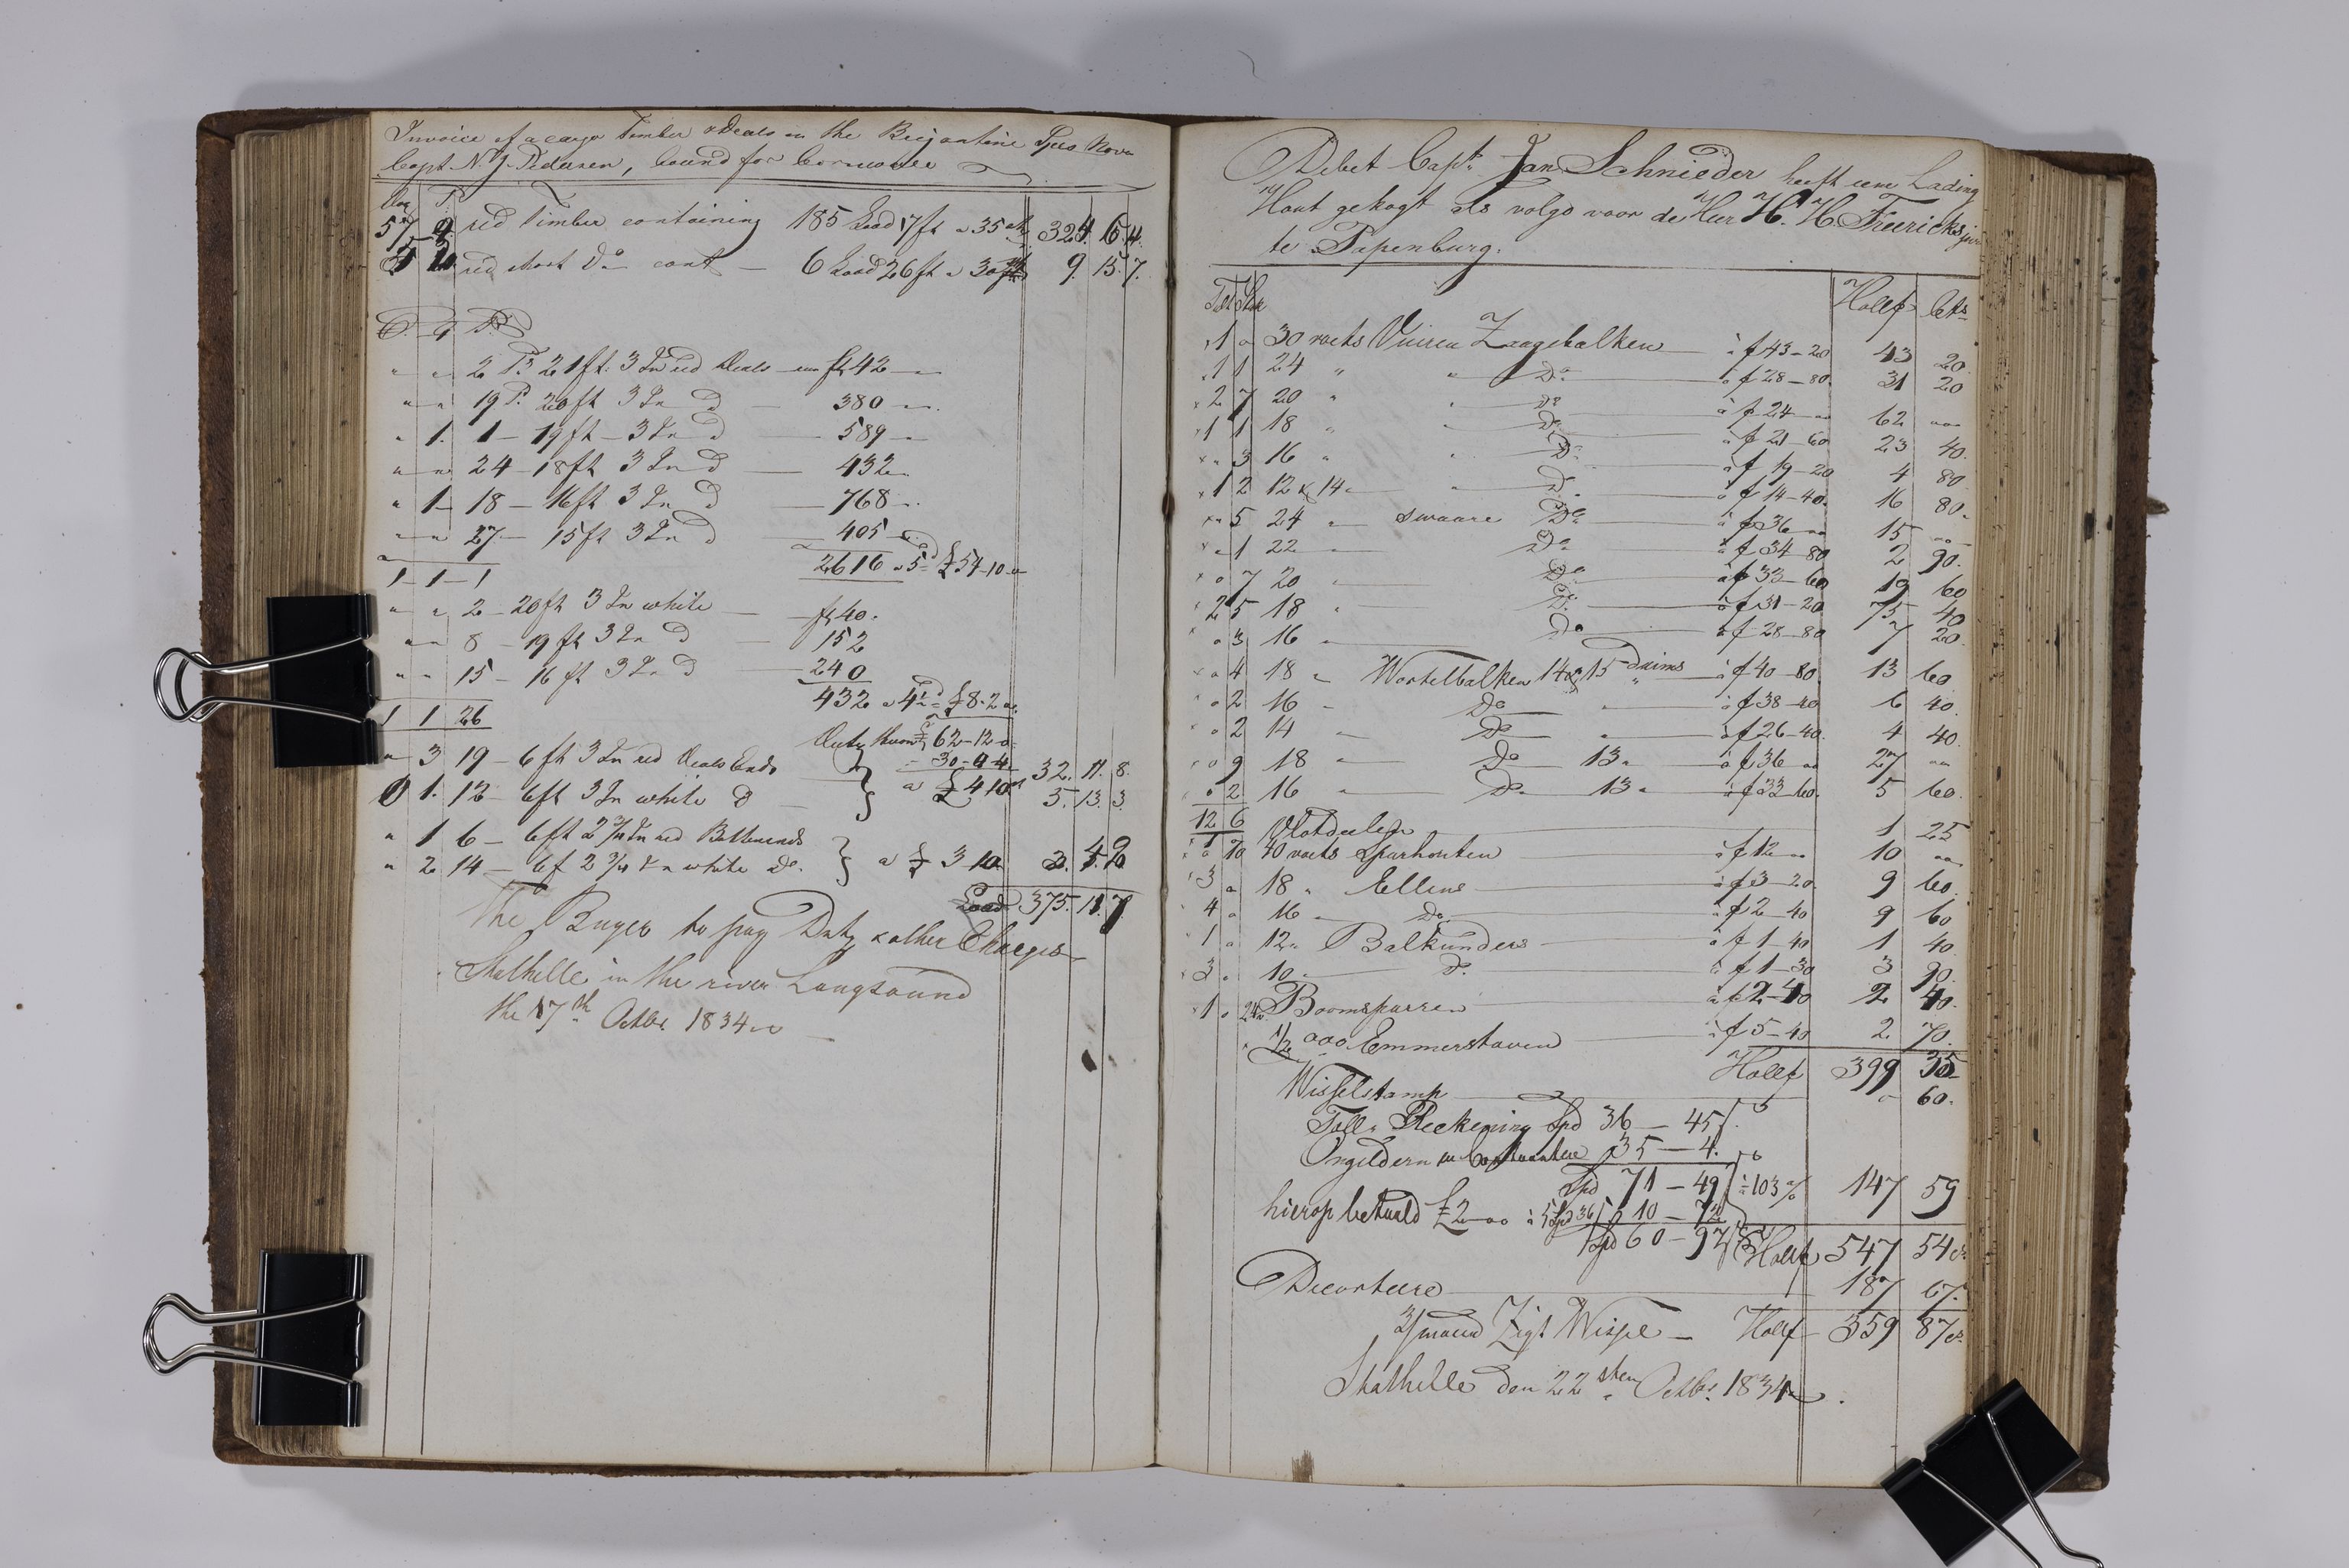 Invoice of a cargo Timber & Deals in the Brigantine Spes Nova
Capt. N. J. Pedersen, bound for Cornwall
57 9 red Timber containing 185 Load 17 ft a 35 sh 324. 6. 4.
red short Do cont — 6 Load 26 ft a 30 sh 9. 15. 7.
C. G. P.
" " 2 Ps 21 ft. 3 In red Deals — ft 42 —
" " 19 P. 20 ft 3 In D — 380 —
" 1. 1 — 19 ft — 3 In D — 589 —
" " 24 — 18 ft 3 In D — 432 —
" 1 — 18 — 16 ft 3 In D — 768 —
" " 27 — 15 ft 3 In D — 405 —
1 — 1 — 1 2616 a 5d £ 54-10-"
" " 2 — 20 ft 3 In white — ft 40.
" " 8 — 19 ft 3 In D — 152
" " 15 — 16 ft 3 In D — 240
432 a 4½ £ 8. 2 "
1 1 26
Duty thereof £ 62-12-0
" 3 19 — 6 ft 3 In red Deals Ends 30-0-4 32. 11. 8.
0 1. 12 — 6 ft 3 In white D — } a £ 4 10 5. 13. 3.
" 1 6 — 6 ft 2 3/4 In red Battenends
" 2 14 — 6 f 2 3/4 In white Do. } a £ 3 10
375. 11. 7
The Buyer to pay Duty & other Charges
Stathelle in the river Langsound
the 17th Octbr 1834
Debet Capt. Jan Schnieder heeft een Lading
Hout gekogt als volgd voor de Heer H. H. Freericks jun
te Papenburg.
Holl f Cts
1 " 30 voets Vuiren Zaagebalken à f 43-20 43 20
1 1 24 " " Do à f 28-80 31 20
2 7 20 " " Do à f 24 — 62 "
1 1 18 " " Do à f 21-60 23 40.
" 3 16 " " Do à f 19-20 4 80
1 2 12 & 14 " " Do à f 14-40. 16 80.
" 5 24 " swaare Do à f 36 — 15 "
" 1 22 " Do à f 34-80 2 90.
" 7 20 " Do à f 33-60 19 60
2 5 18 " Do à f 31-20 75 40
" 3 16 " Do à f 28-80 7 20.
" 4 18 " Wortelbalken 14 & 15 Duims à f 40-80 13 60
" 2 16 " Do " à f 38-40 6 40.
" 2 14 " Do " à f 26-40. 4 40.
" 9 18 " Do 13 " à f 36 — 27 "
" 2 16 " Do 13 " à f 33-60. 5 60.
12 6 Vlotdeelen 1 25
" 10 40 voets Sparhouten à f 12 — 10 "
3 " 18 " Ellens à f 3-20. 9 60.
4 " 16 " Do à f 2-40 9 60
1 " 12 " Balkunders à f 1-40 1 40
3 " 10 " D. à f 1-30 3 90.
1 " 24 Boomsparren à f 2-40 2 40.
1/2 000 Emmerstaven à f 5-40 2. 70.
Hollf 399 35
Wisselstamp " 60.
Toll Reckening Spd 36 — 45
Ongeldern 35 — 4.
Spd 71 — 49 à 103 % 147 59
hierop betaald £ 2 — à 5 Spd 36 10 — 72
Spd 60 — 97 Hollf 547 54
187 67.
3/maand Zigt Wissel — Hollf 359 87
Stathelle den 22sten Octbr 1834